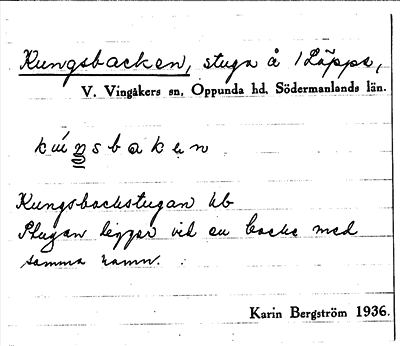 Kungsbacken, stuga å 1 Läppe,
V. Vingåkers sn, Oppunda hd, Södermanlands län.
kúŋsbaken
Kungsbackstugan kb
Stugan ligger vid en backe med
samma namn.
Karin Bergström 1936.